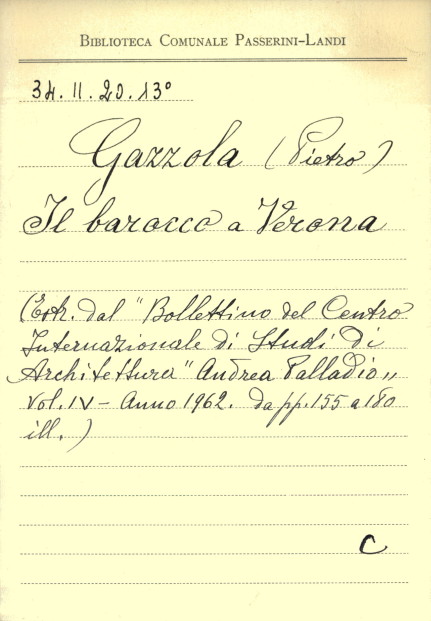 BIBLIOTECA COMUNALE PASSERINI-LANDI
34.II.20.13°
Gazzola (Pietro)
Il barocco a Verona
(Estr. dal "Bollettino del Centro
Internazionale di Studi di
Architettura" Andrea Palladio,,
Vol. IV - Anno 1962. da pp. 155 a 180
ill.)
C